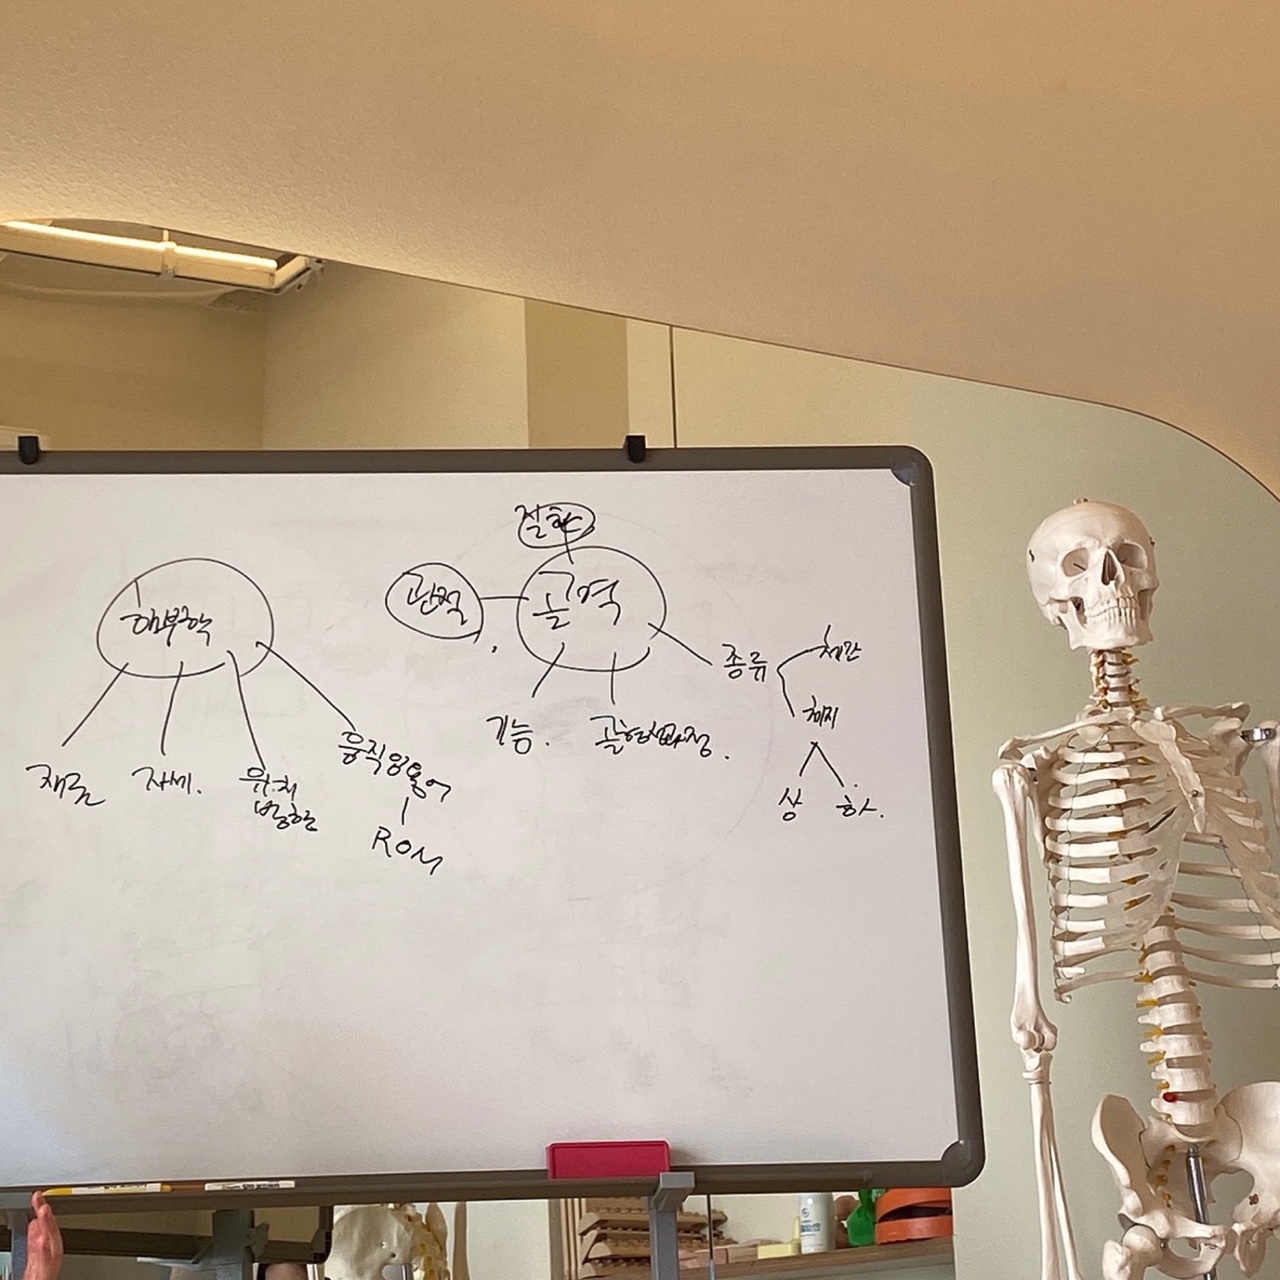 해부학
자세.
위치
방향
움직임용어
ROM
질환
관절
골격
기능.
골형성과정.
종류
체간
체지
상
하.